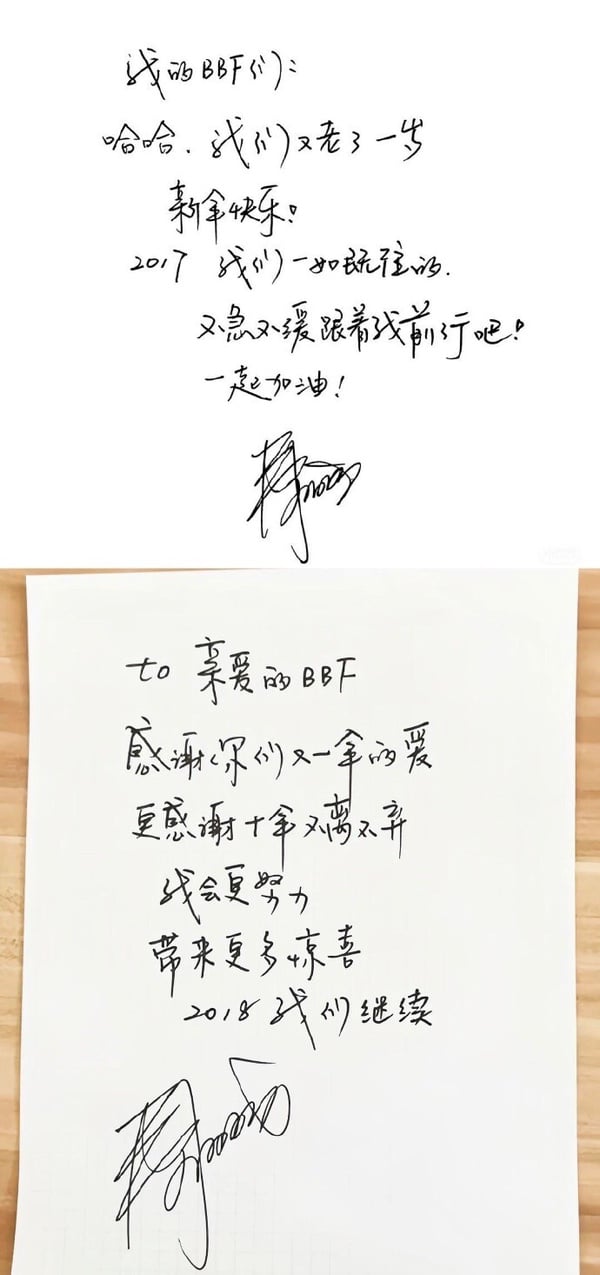 我的BBF们:
哈哈、我们又老了一岁
新年快乐!
2017 我们一如既往的.
不急不缓跟着我前行吧!
一起加油!
to 亲爱的BBF
感谢你们又一年的爱
更感谢十年不离不弃
我会更努力
带来更多惊喜
2018 我们继续